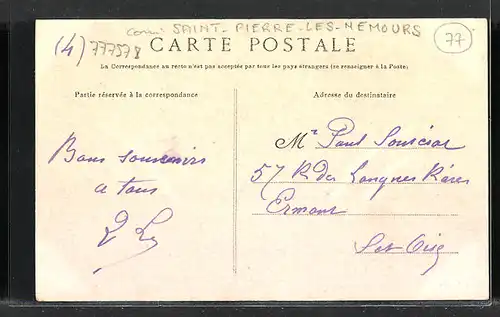 com: SAINT-PIERRE-LES-NEMOURS
(4) 777578
77
CARTE POSTALE
La Correspondance au recto n'est pas acceptée par tous les pays étrangers (se renseigner à la Poste)
Partie réservée à la correspondance
Adresse du destinataire
Bons souvenirs
a tous
Mr Paul
57 R des Longues Raies
Ermont
Set Oise